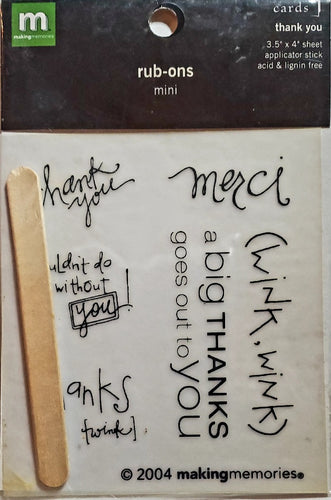 m
makingmemories
cards ]
thank you
3.5" x 4" sheet
applicator stick
acid & lignin free
rub-ons
mini
hank
you
merci
uldn't do
without
you!
(wink, wink)
a big THANKS
goes out to YOU
anks
[wink]
© 2004 makingmemories®